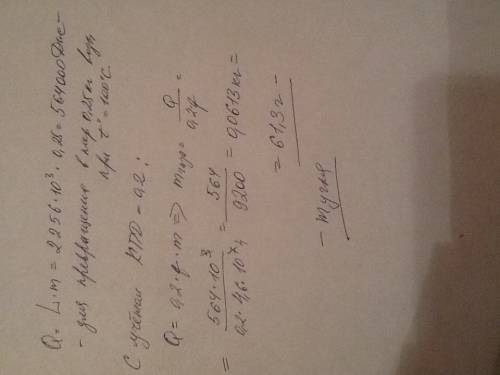 Q = L·m = 2256·10³ · 0,25 = 564000 Дж –
– для превращения в пар 0,25 кг воды
при t° = 100°C.
С учётом КПД = 0,2 :
Q = 0,2·q·m ⇒ m = Q / 0,2q =
= 564·10³ / 0,2·4,6·10⁷ = 564 / 9200 = 0,0613 кг =
= 61,3 г –
– m угля